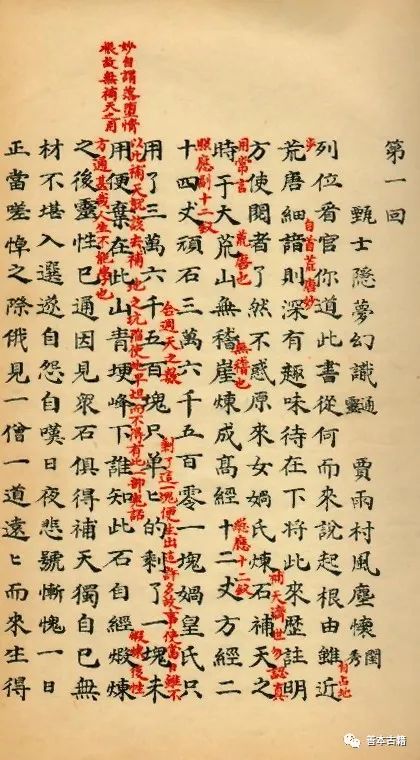 第一回
甄士隱夢幻識通靈 賈雨村風塵懷閨秀
自占地
步
列位看官你道此書從何而來說起根由雖近
自首荒唐妙
荒唐細諳則深有趣味待在下將此來歷註明
方使閱者了然不惑原來女媧氏煉石補天之
補天濟世勿認真
用常言
荒唐也
無稽也
總應十二釵
時于大荒山無稽崖煉成高經十二丈方經二
照應副十二釵
十四丈頑石三萬六千五百零一塊媧皇氏只
合週天之數
用了三萬六千五百塊只單匕的剩了一塊未
剩了這一塊便生出這許多故事使當日雖不
以此補天就該去補地之坑陷使地平坦而不得有此一部鬼話
用便棄在此山青埂峰下誰知此石自經煅煉
妙自謂落墮情
根故無補天之用
煅煉後性
方通甚哉人生不能學也
之後靈性已通因見衆石俱得補天獨自己無
材不堪入選遂自怨自嘆日夜悲號慚愧一日
正當嗟悼之際俄見一僧一道遠匕而來生得
善本古籍